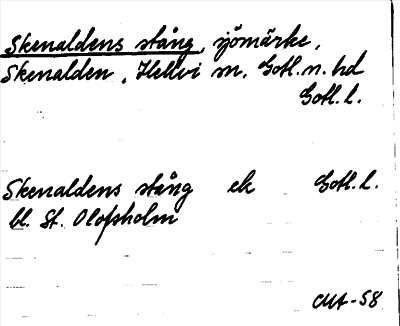 Skenaldens stång, sjömärke,
Skenalden, Hellvi sn, Gotl. n. hd
Gotl. l.
Skenaldens stång ek Gotl. l.
bl. St. Olofsholm
-58